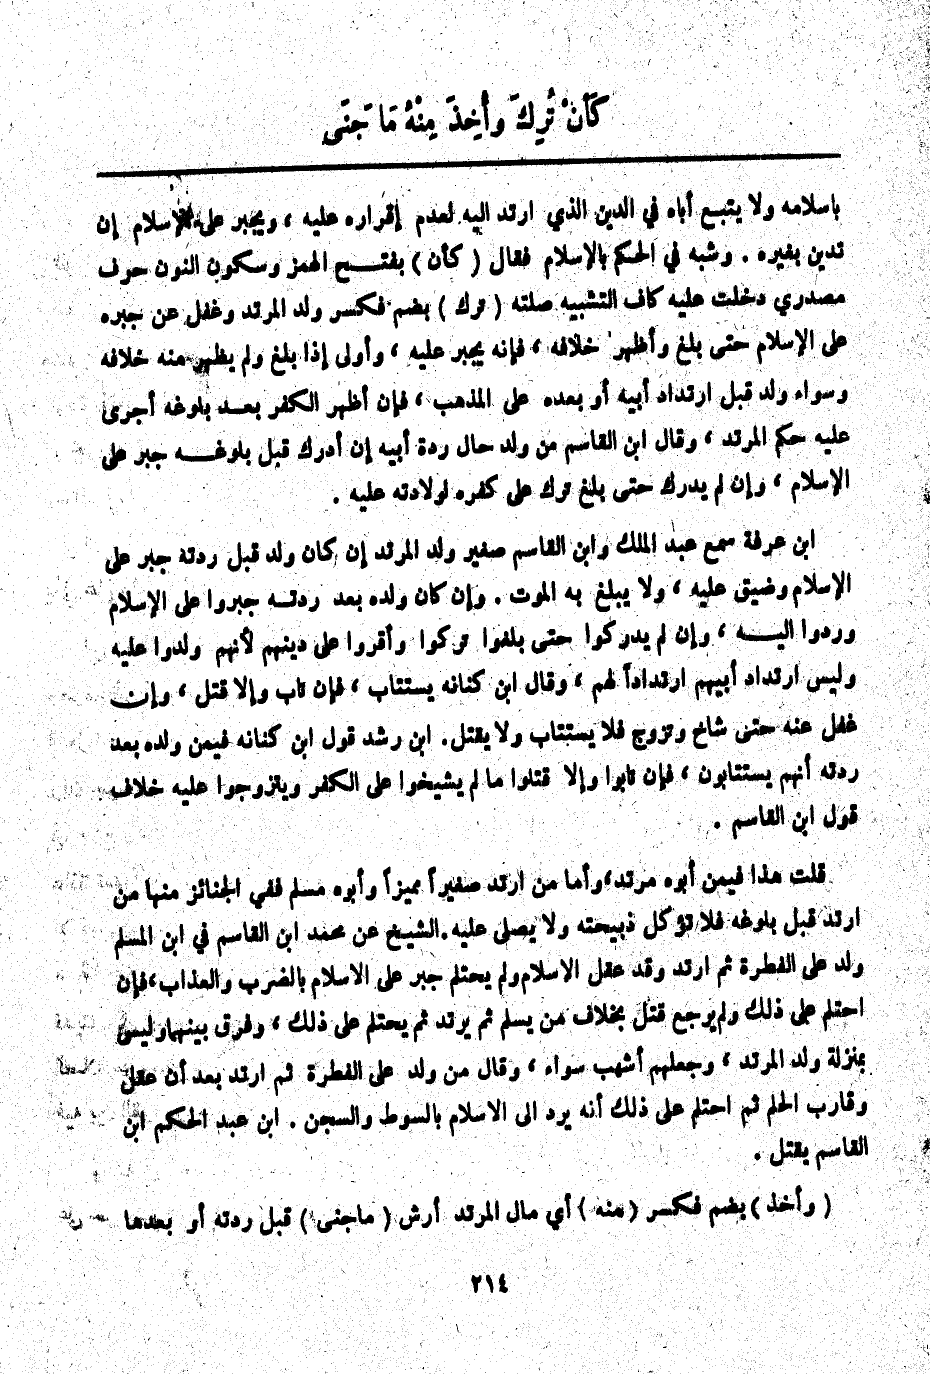 كَأَنْ تُرِكَ وأُخِذَ مِنْهُ مَا جَنَى
باسلامه ولا يتبع أباه في الدين الذي ارتد اليه لعدم إقراره عليه ، ويجبر على الإسلام إن
تدين بغيره . وشبه في الحكم بالإسلام فقال ( كأن ) بفتح الهمز وسكون النون حرف
مصدري دخلت عليه كاف التشبيه صلته ( ترك ) بضم فكسر ولد المرتد وغفل عن جبره
على الإسلام حتى بلغ وأظهر خلافه ، فإنه يجبر عليه ، وأولى إذا بلغ ولم يظهر منه خلافه
وسواء ولد قبل ارتداد أبيه أو بعده على المذهب ، فإن أظهر الكفر بعد بلوغه أجرى
عليه حكم المرتد ، وقال ابن القاسم من ولد حال ردة أبيه إن أدرك قبل بلوغه جبر على
الإسلام ، وإن لم يدرك حتى بلغ ترك على كفره لولادته عليه .
ابن عرفة سمع عبد الملك وابن القاسم صغير ولد المرتد إن كان ولد قبل ردته جبر على
الإسلام وضيق عليه ، ولا يبلغ به الموت . وإن كان ولده بعد ردته جبروا على الإسلام
وردوا اليه ، وإن لم يدركوا حتى بلغوا تركوا وأقروا على دينهم لأنهم ولدوا عليه
وليس ارتداد أبيهم ارتداداً لهم ، وقال ابن كنانه يستتاب ، فإن تاب وإلا قتل ، وإن
غفل عنه حتى شاخ وتزوج فلا يستتاب ولا يقتل . ابن رشد قول ابن كنانه فيمن ولده بعد
ردته أنهم يستتابون ، فإن تابوا وإلا قتلوا ما لم يشيخوا على الكفر ويتزوجوا عليه خلاف
قول ابن القاسم .
قلت هذا فيمن أبوه مرتد،وأما من ارتد صغيراً مميزاً وأبوه مسلم ففي الجنائز منها من
ارتد قبل بلوغه فلا تؤكل ذبيحته ولا يصلى عليه.الشيخ عن محمد ابن القاسم في ابن المسلم
ولد على الفطرة ثم ارتد وقد عقل الاسلام ولم يحتلم جبر على الاسلام بالضرب والعذاب،فإن
احتلم على ذلك ولم يرجع قتل بخلاف من يسلم ثم يرتد ثم يحتلم على ذلك ، وفرق بينهما وليس
بمنزلة ولد المرتد ، وجعلهم أشهب سواء ، وقال من ولد على الفطرة ثم ارتد بعد أن عقل
وقارب الحلم ثم احتلم على ذلك أنه يرد الى الاسلام بالسوط والسجن . ابن عبد الحكم ابن
القاسم يقتل .
( وأخذ ) بضم فكسر ( منه ) أي مال المرتد أرش ( ماجنى ) قبل ردته أو بعدها
٢١٤